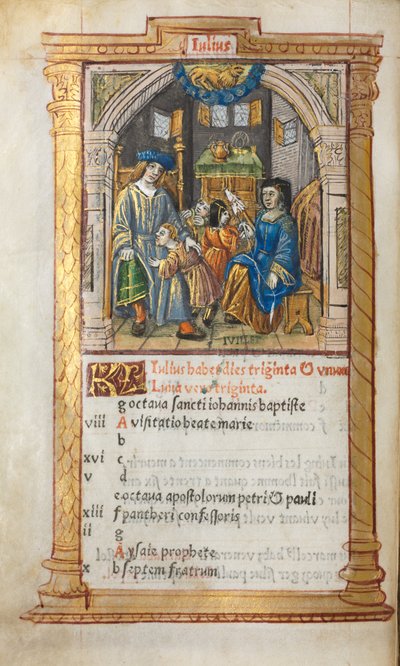 Iulius
IVILLET
KL Iulius habet dies triginta & unum
Luna vero triginta.
g octava sancti iohannis baptiste
viii A visitatio beate marie
b
xvi c
v d
e octava apostolorum petri & pauli
xiii f pantheri confessoris
ii g
A ysaie prophete
x b septem fratrum